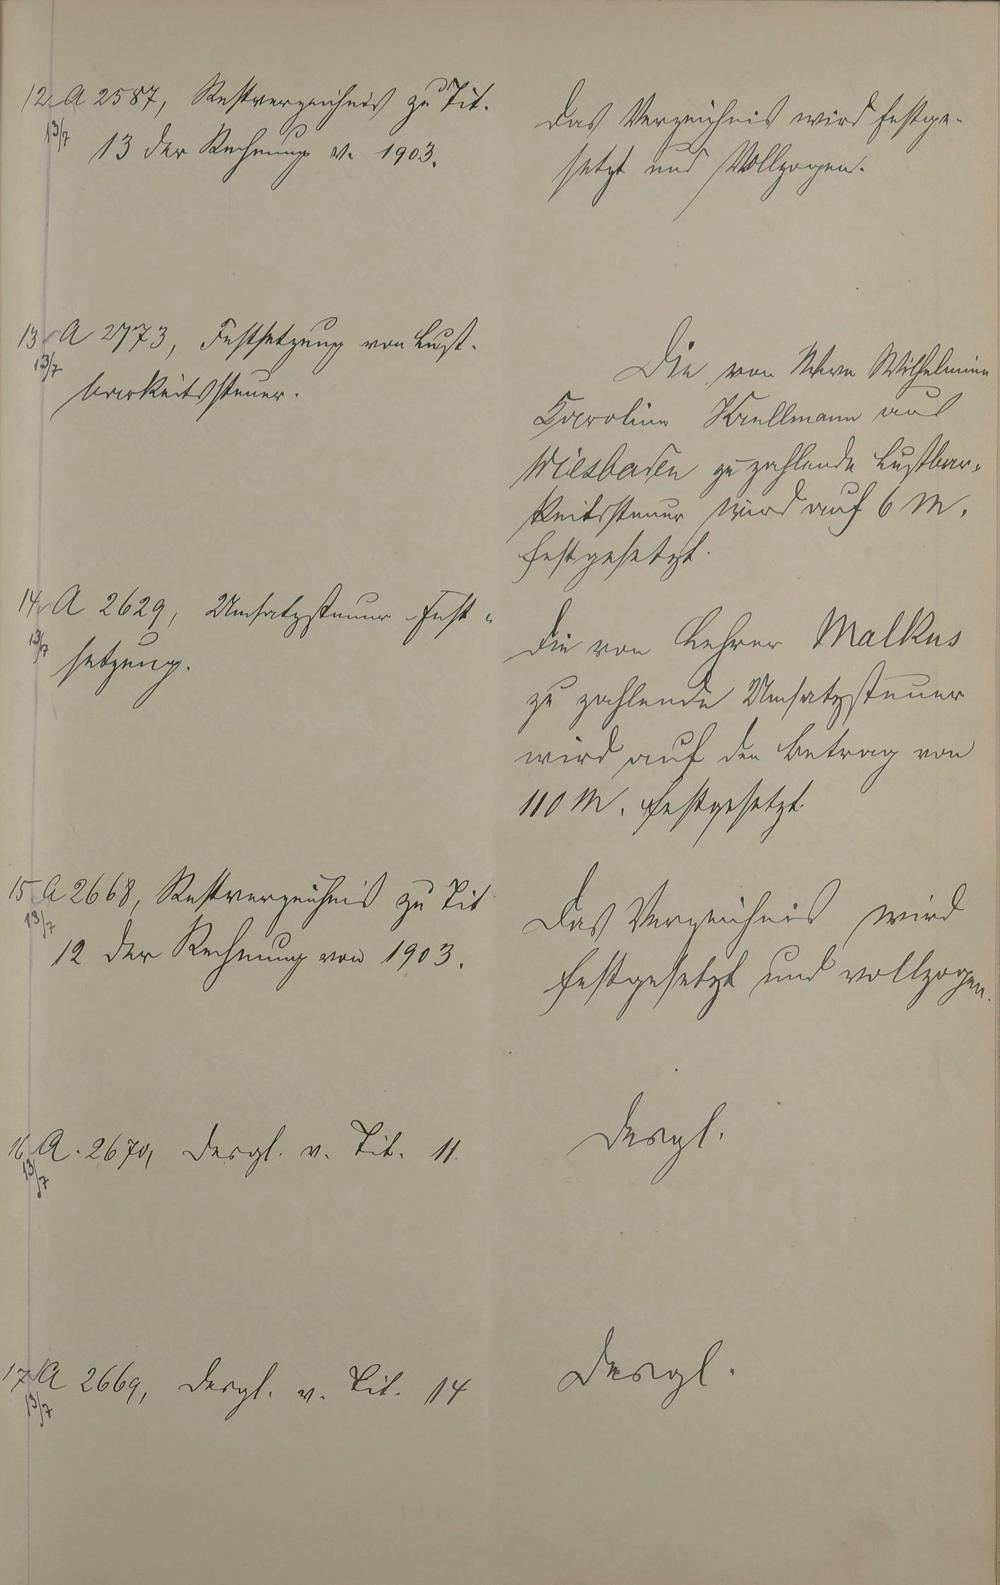 12 A 2587, Restverzeichnis zu Tit.
13/7
13 der Rechnung v. 1903.
Das Verzeichnis wird festge-
setzt und Vollzogen.
13 A 2773, Festsetzung von Lust-
13/7
barkeitssteuer.
Die von Wilhelmine
Caroline Krellmann aus
Wiesbaden zu zahlende Lustbar-
keitssteuer wird auf 6 M.
festgesetzt.
14 A 2629, Umsatzsteuer Fest-
13/7
setzung.
Die von Lehrer Malkus
zu zahlende Umsatzsteuer
wird auf den Betrag von
110 M. festgesetzt.
15 A 2668, Restverzeichnis zu Tit
13/7
12 der Rechnung von 1903.
Das Verzeichnis wird
festgesetzt und vollzogen.
16 A. 2670, Desgl. v. Tit. 11.
13/7
Desgl.
17 A 2669, Desgl. v. Tit. 14
13/7
Desgl.